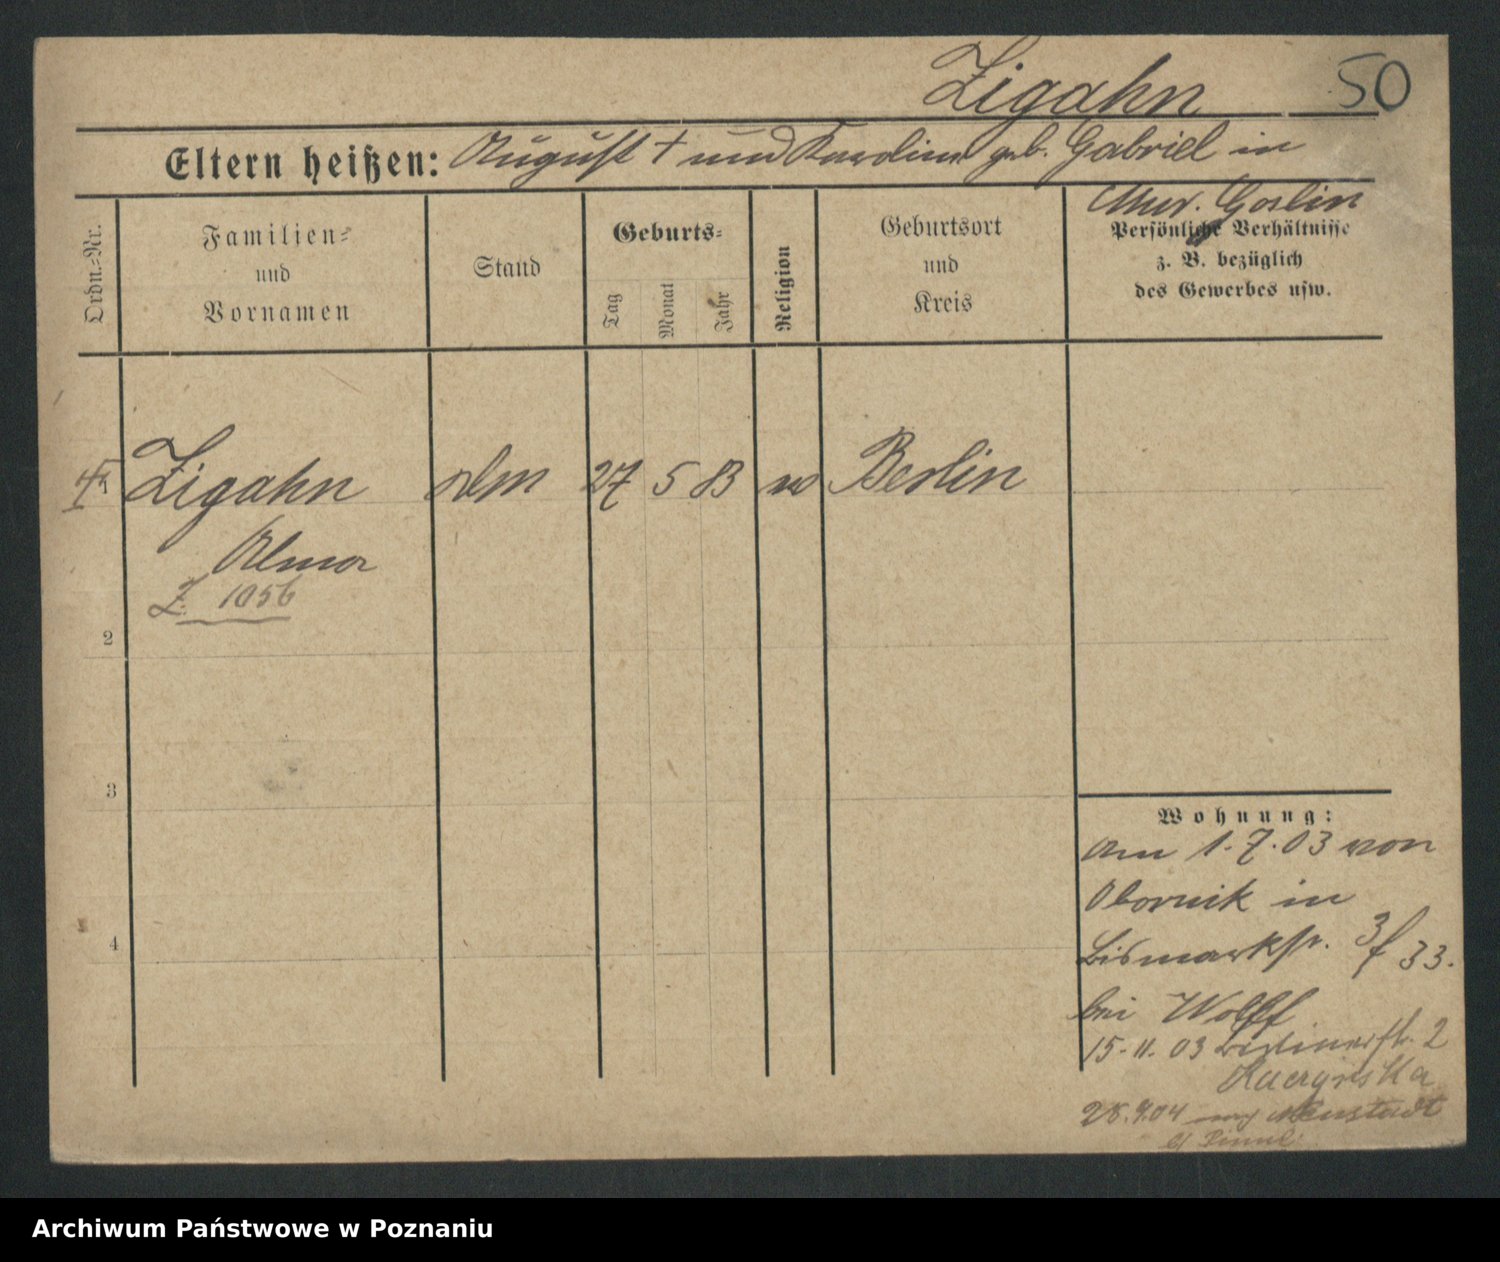 Zigahn 50
Eltern heißen: August † und Karoline geb. Gabriel in
Mur. Goslin
Ordn.-Nr.
Familien-
und
Vornamen
Stand
Geburts-
Tag
Monat
Jahr
Religion
Geburtsort
und
Kreis
Persönliche Verhältnisse
z. B. bezüglich
des Gewerbes usw.
Zigahn 27 5 83 Berlin
Z. 1056
2
3
4
Wohnung:
am 1.7.03 von
Obornik in
Bismarkstr. 3/f 33.
bei Wolff
15-11.03 Berlinerstr. 2
28.9.04 Neustadt
b/ Pinne
Archiwum Państwowe w Poznaniu